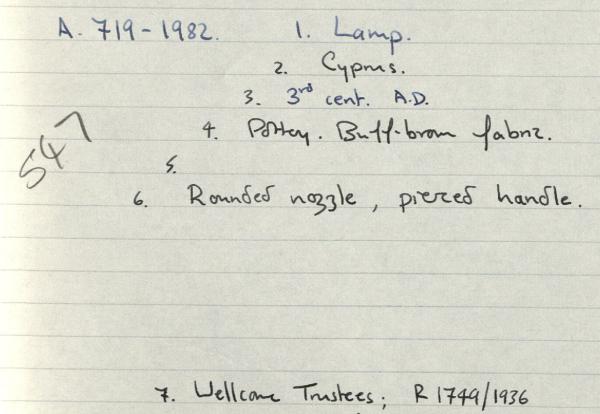 A. 719-1982. 1. Lamp.
2. Cyprus.
3. 3rd cent. A.D.
4. Pottery. Buff-brown fabric.
547
5.
6. Rounded nozzle, pierced handle.
7. Wellcome Trustees; R 1749/1936